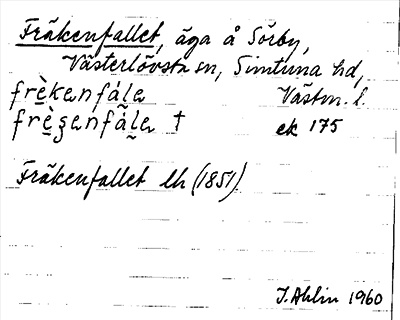 Fräkenfallet, äga å Sörby,
Västerlövsta sn, Simtuna hd,
frèkenfále Västm. l.
frèʒenfále † ek 175
Fräkenfallet lh (1851)
J. Ahlin 1960